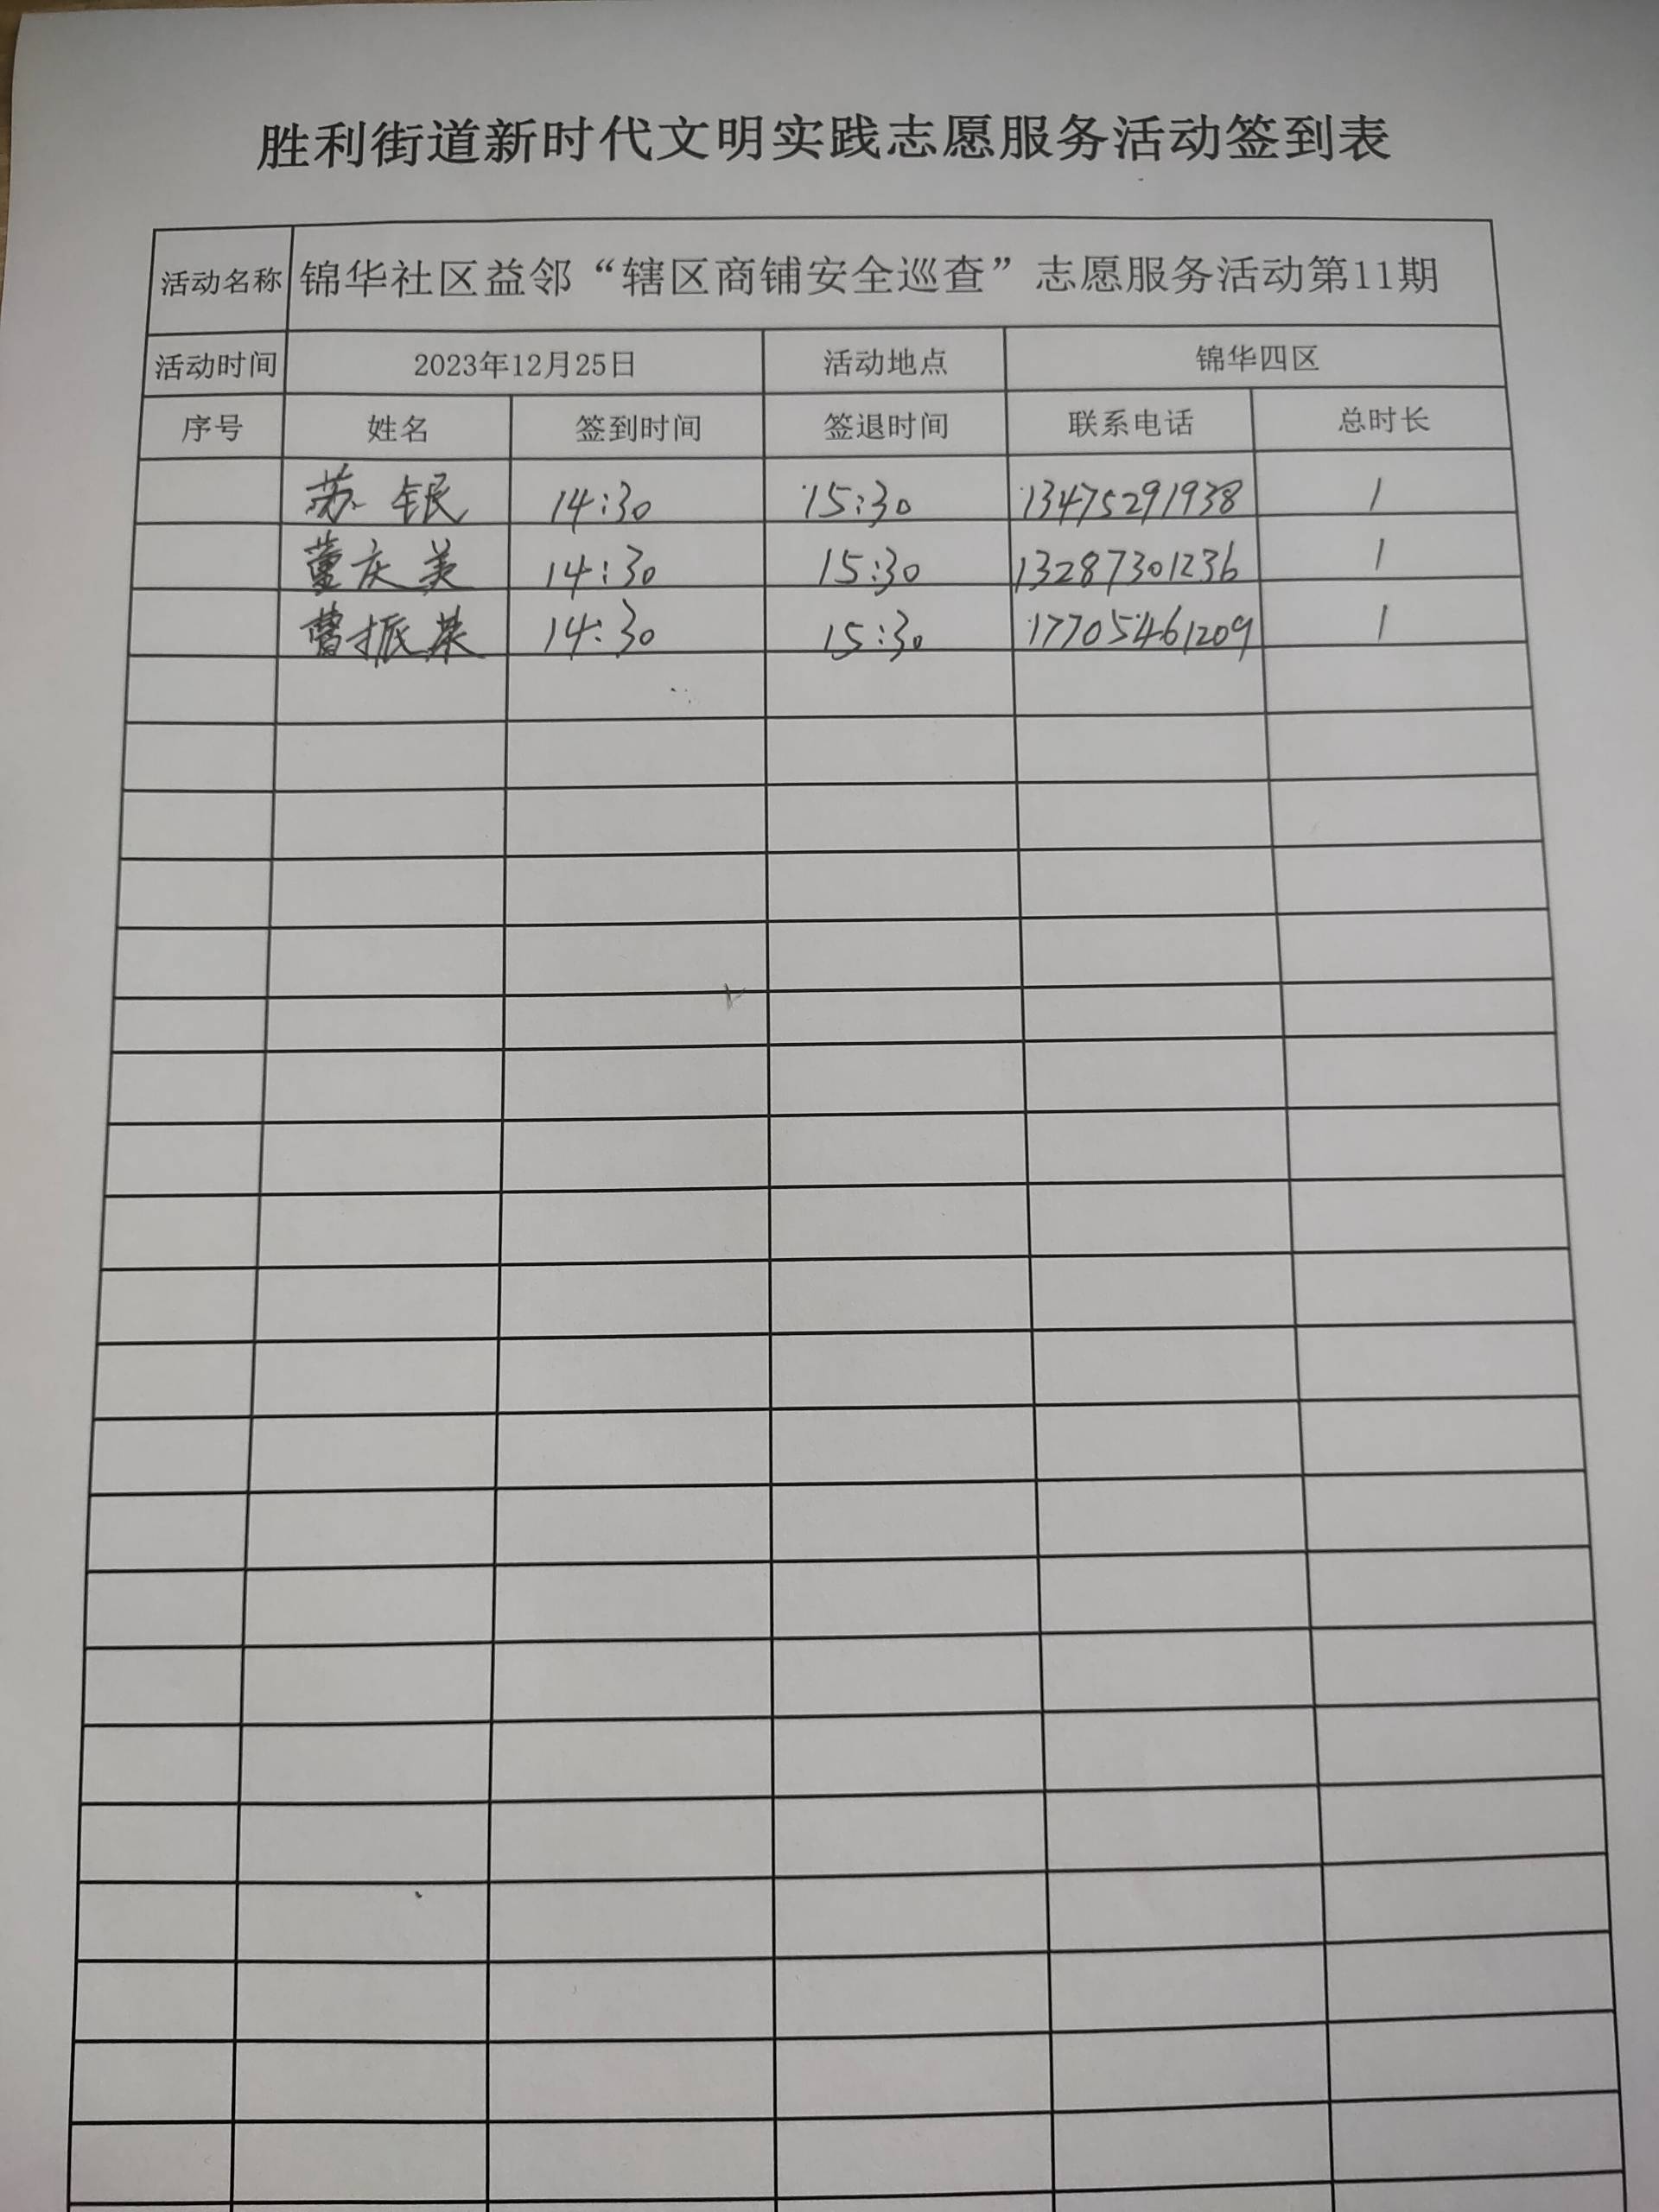 胜利街道新时代文明实践志愿服务活动签到表
活动名称 锦华社区益邻“辖区商铺安全巡查”志愿服务活动第11期
活动时间 2023年12月25日 活动地点 锦华四区
序号 姓名 签到时间 签退时间 联系电话 总时长
苏银 14:30 15:30 13475291938 1
董庆美 14:30 15:30 13287301236 1
曹振英 14:30 15:30 17705461209 1